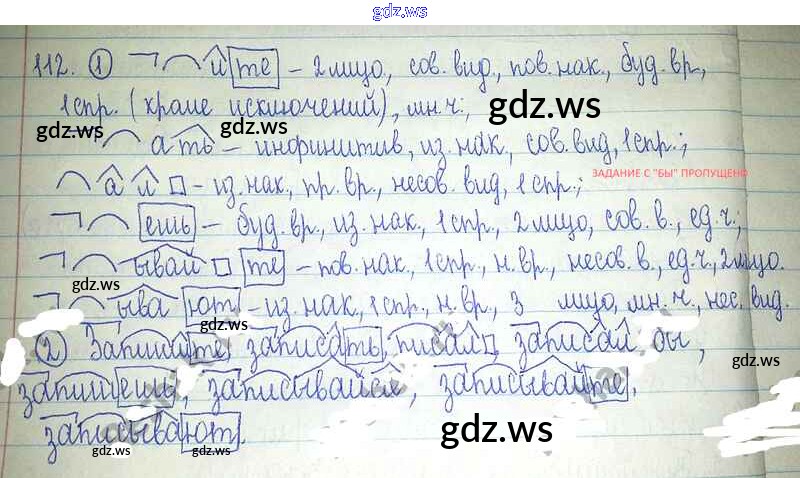 gdz.ws
112. 1 ите – 2 лицо, сов. вид., пов. нак., буд. вр.,
1 спр. (кроме исключений), мн. ч.;
gdz.ws gdz.ws gdz.ws
ать – инфинитив, из. нак., сов. вид, 1 спр.;
ЗАДАНИЕ С "БЫ" ПРОПУЩЕНО
ал – из. нак., пр. вр., несов. вид, 1 спр.;
ешь – буд. вр., из. нак., 1 спр., 2 лицо, сов. в., ед. ч.;
ывай те – пов. нак., 1 спр., н. вр., несов. в., ед. ч., 2 лицо.
gdz.ws
ыва ют – из. нак., 1 спр., н. вр., 3 лицо, мн. ч., нес. вид.
gdz.ws
2 Запишите, записать, писал, записал бы,
gdz.ws
запишешь, записывайся, записывайте,
gdz.ws
записывают.
gdz.ws gdz.ws gdz.ws